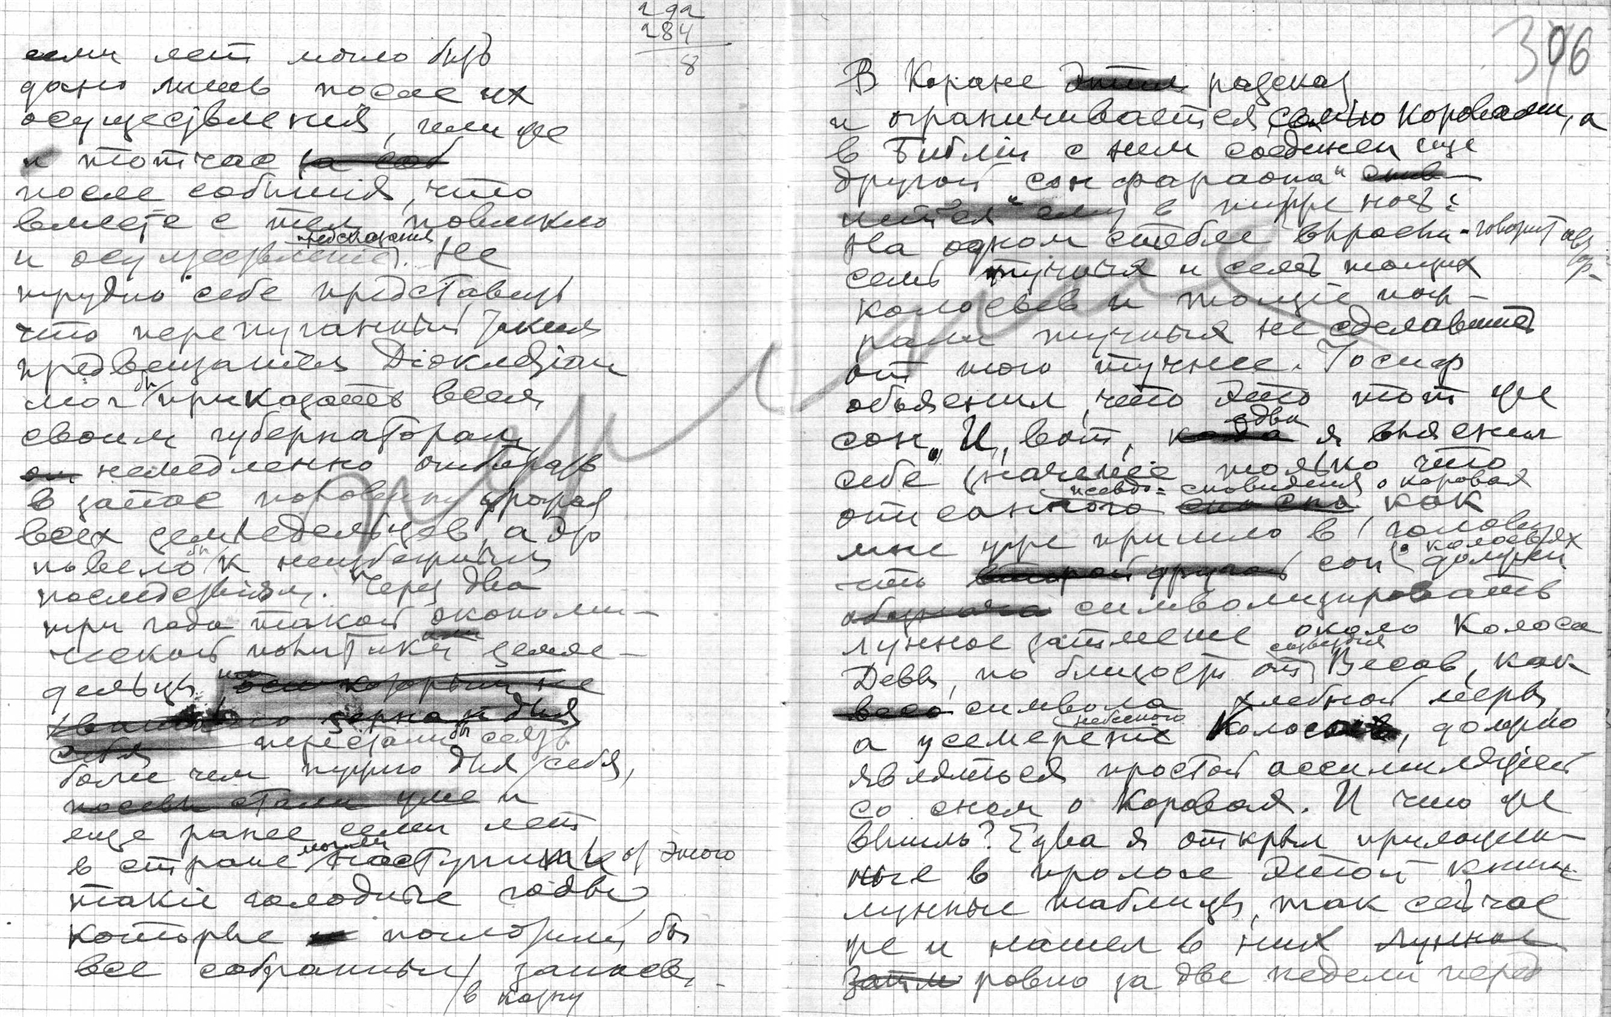 292
284
8
семи лет могло быть
дано лишь после их
осуществления, или же
и тотчас за соб
после события, что
вместе с тем повлекло
предсказания
и осуществление. Не
трудно себе представить
что перепуганный таким
предвещанием Діоклетіан
мог бы приказать всем
своим губернаторам
он немедленно отбирать
в запас половину урожая
всех земледельцев, а это
повело бы к неизбежным
последствіям. Через два
три года такой экономи-
ческой политики земле-
дельцы
зерна и для
себя перестали бы сеять
более чем нужно для себя,
посевы стали уже и
еще ранее семи лет
в стране могли наступить от этого
такіе голодные годы
которые поглотили бы
все собранныя в казну запасы,
396
В Коране этим рассказ
и ограничивается семью коровами, а
в Библіи с ним соединен еще
другой сон фараона
ему в ту же ночь:
На одном стебле выросли - говорит автор -
семь тучных и семь тощих
колосьев и тощіе пож-
рали тучных не сделавшись
от того тучнее. Іосиф
объяснил, что это тот же
сон". И, вот, едва я выяснил
себе значеніе только что
описанного псевдо-сновидения о коровах как
мне уже пришло в голову,
что второй другой сон о колосьях должен
символизировать
лунное затмение около Колоса
Девы, по близости от созвездия Весов, как
символа хлебной меры,
а усемерение небесного Колоса, должно
являться простой ассимиляціей
со сном о коровах. И что же
вышло? Едва я открыл приложен-
ные в прологе этой книги
лунные таблицы, так сейчас
же и нашел в них лунное
затм ровно за две недели перед